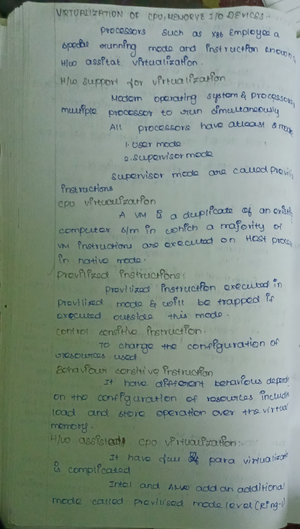 VIRTUALIZATION OF CPU, MEMORY & I/O DEVICES:-
Processors such as x86 Employee a
special running mode and instruction known
H/w assitat virtualization.
H/w support for virtualization
Modern operating system & processors
multiple processor to run simultaneously
All processors have atleast 2 mode
1. User mode
2. supervisor mode
supervisor mode are called previl
instructions
CPU virtualization
A VM is a duplicate of an existi
computer s/m in which a majority of
VM instructions are executed on Host proce
in native mode.
Previlized Instructions:
Previlized instruction executed in
previlized mode & will be trapped if
executed outside this mode.
control sensitive instruction:
To change the configuration of
resources used
Behaviour sensitive instruction
It have different behavious depend
on the configuration of resources include
load and store operation over the virtual
memory.
H/w assisted CPU virtualization:
It have full para virtualizati
is complicated
Intel and AMD add an additional
mode called previlised mode level (Ring-1)